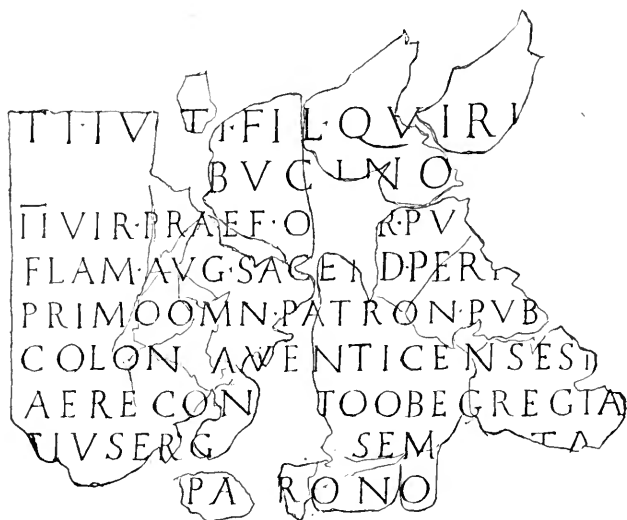 TI·IV TI·FIL·QVIRI
BVCINO
IIVIR·PRAEF·O R·PV
FLAM·AVG·SACE DPER
PRIMOOMN·PATRON·PVB
COLON AVENTICENSES
AERE CON TOOBEGREGIA
IVSERG SEM TA
PA RONO